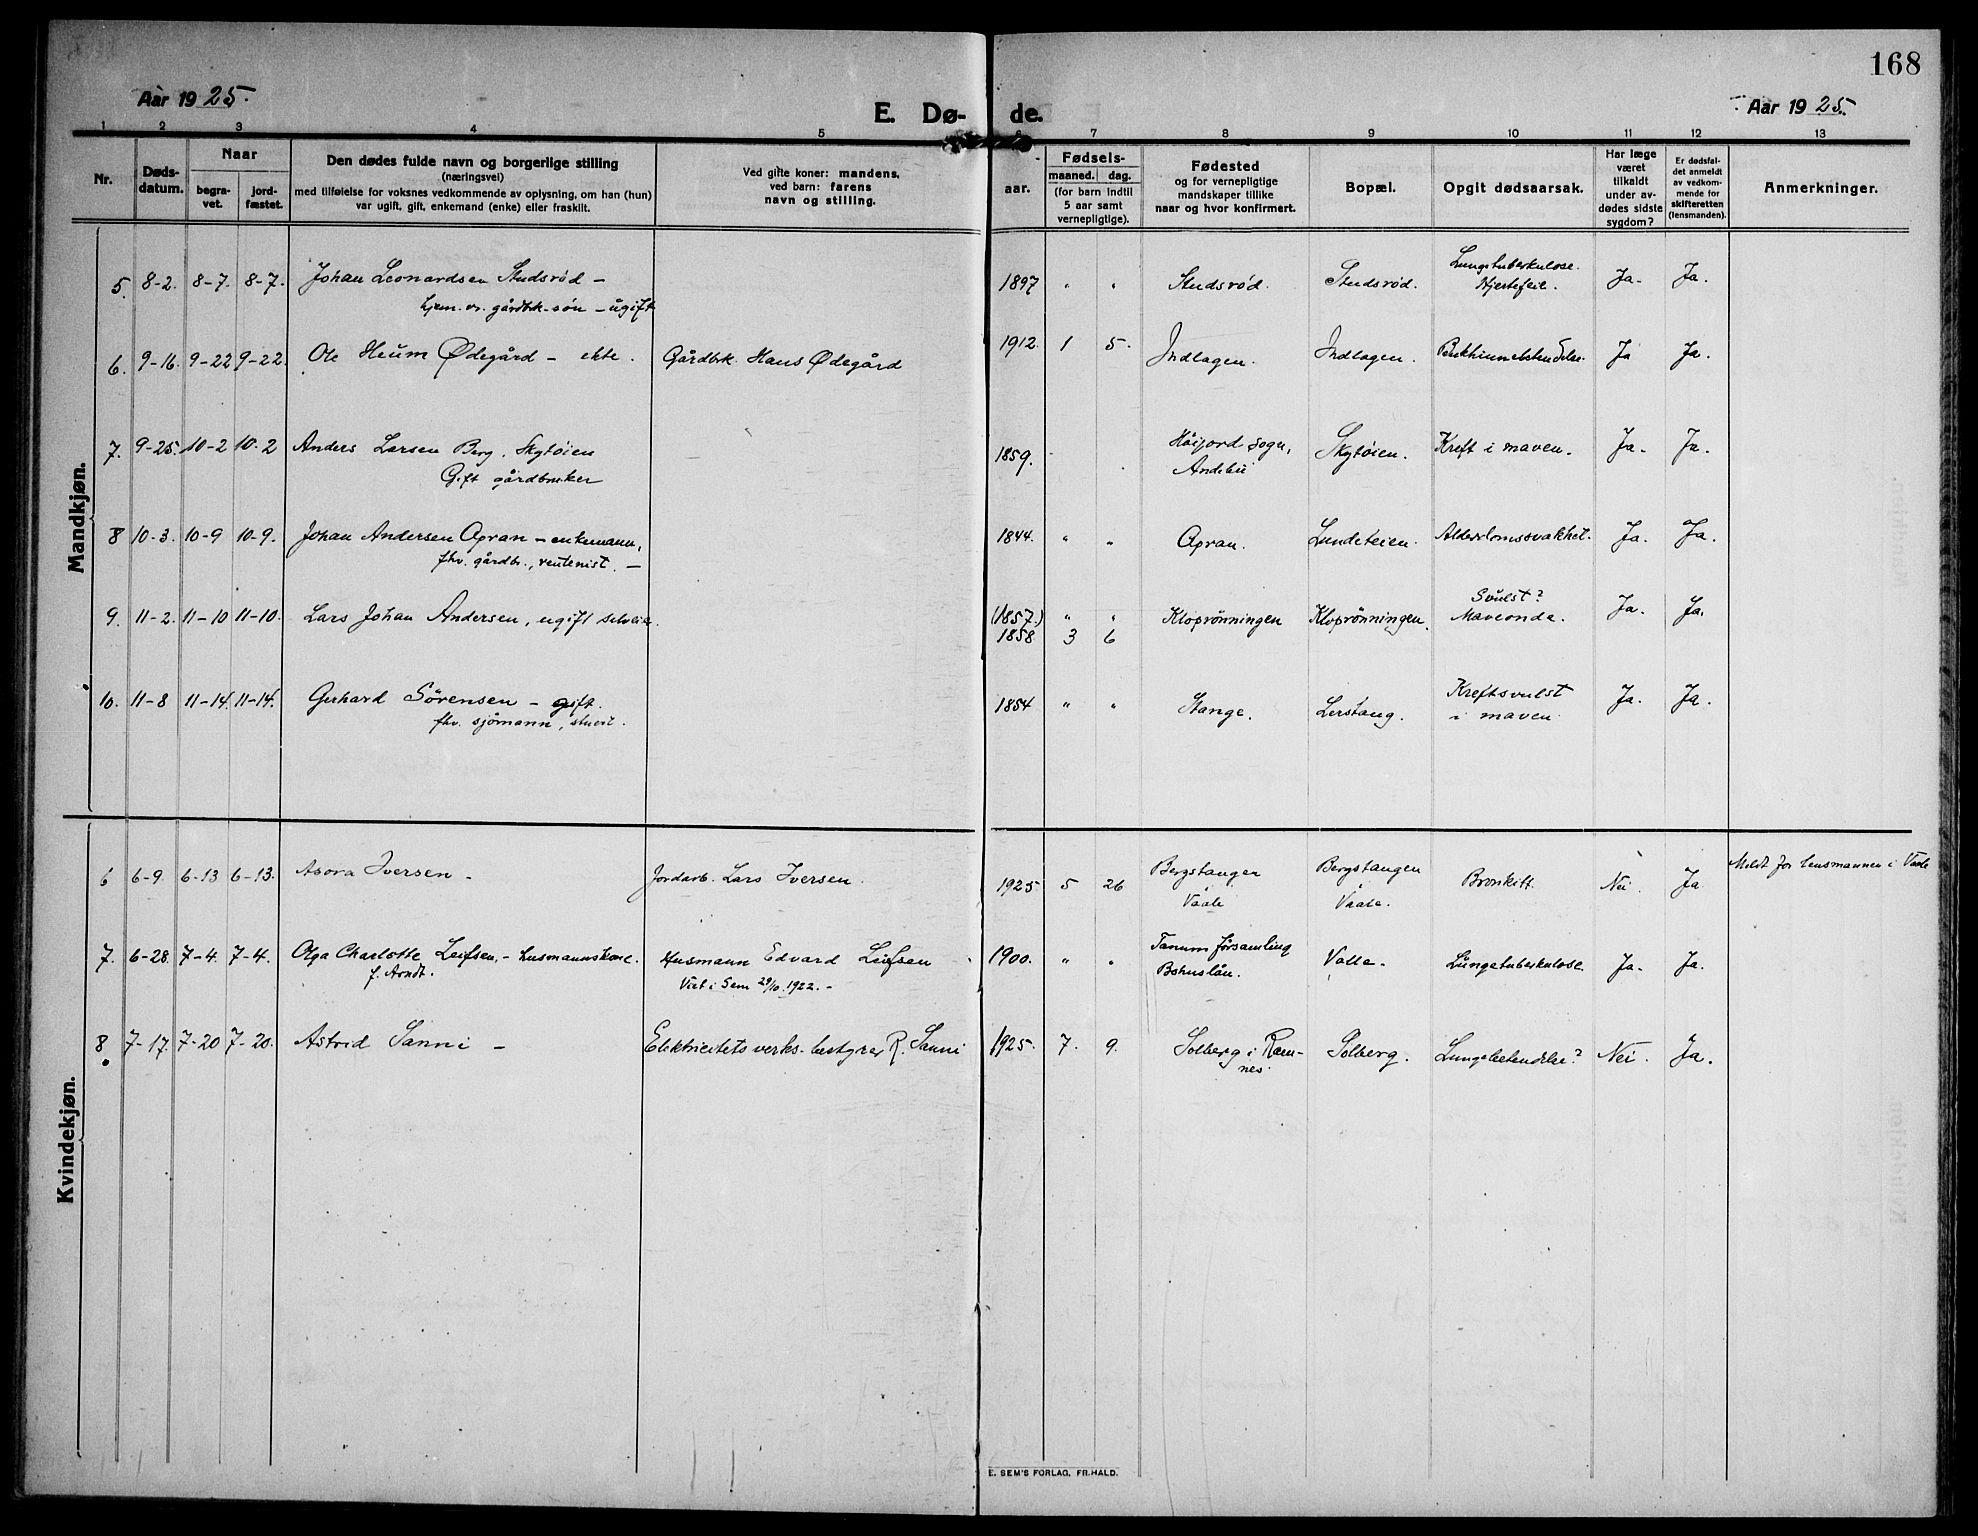 168
Aar 1925.
E. Dø-
de.
Aar 1925.
1 2 3 4 5 6 7 8 9 10 11 12 13
Nr.
Døds-
datum.
Naar
begra-
vet.
jord-
fæstet.
Den dødes fulde navn og borgerlige stilling
(næringsvei)
med tilføielse for voksnes vedkommende av oplysning, om han (hun)
var ugift, gift, enkemand (enke) eller fraskilt.
Ved gifte koner: mandens,
ved barn: farens
navn og stilling.
aar.
Fødsels-
maaned. dag.
(for barn indtil
5 aar samt
vernepligtige).
Fødested
og for vernepligtige
mandskaper tillike
naar og hvor konfirmert.
Bopæl.
Opgit dødsaarsak.
Har læge
været
tilkaldt
under av-
dødes sidste
sygdom?
Er dødsfal-
det anmeldt
av vedkom-
mende for
skifteretten
(lensmanden).
Anmerkninger.
Mandkjøn.
5. 8-2. 8-7. 8-7. Johan Leonardsen Studsrød — 1897 " " Studsrød. Studsrød. Lungetuberkulose. Ja. Ja.
gårdbr.søn - ugift Hjertefeil.
6. 9-16. 9-22 9-22. Ole Heum Ødegård — ekte. Gårdbr. Hans Ødegård 1912. 1 5. Indlagen. Indlagen. Ja Ja.
7. 9-25. 10-2 10-2 Anders Larsen Berg, Skytøien 1859. Høijord sogn, Skytøien. Kreft i maven. Ja. Ja.
Gift gårdbruker Andebu
8 10-3. 10-9 10-9. Johan Andersen Apran — enkemann, 1844. " " Apran. Lundeteien. Alderdomssvakhet. Ja. Ja.
fhv. gårdbr., rentenist. —
9. 11-2. 11-10 11-10. Lars Johan Andersen, ugift (1857.) " " Kloprønningen Kloprønningen. Svulst? Ja. Ja.
1858 3 6 Maveonde.
10. 11-8 11-14. 11-14. Gerhard Sørensen — gift. 1854 " " Stange. Lerstang. Kreftsvulst Ja. Ja.
fhv. sjømann, i maven.
Kvindekjøn.
6 6-9. 6-13 6-13. Asora Iversen — Jordarb. Lars Iversen. 1925 5 26 Bergstangen Bergstangen Bronkitt. Nei. Ja Meldt for lensmannen i Våle
Vaale i Vaale.
7. 6-28. 7-4. 7-4. Olga Charlotte Leifsen, - husmannskone. Husmann Edvard Leifsen 1900. " " Tanum församling Valle. Lungetuberkulose. Ja. Ja.
f. Arndt. Viet i Sem 29/10.1922. — Bohuslän.
8. 7-17. 7-20 7-20. Astrid Sanni — Elektricitetsverks-bestyrer R. Sanni 1925. 7. 9. Solberg i Ram- Solberg. Lungebetendelse? Nei. Ja.
nes.
E. SEM'S FORLAG, FR.HALD.